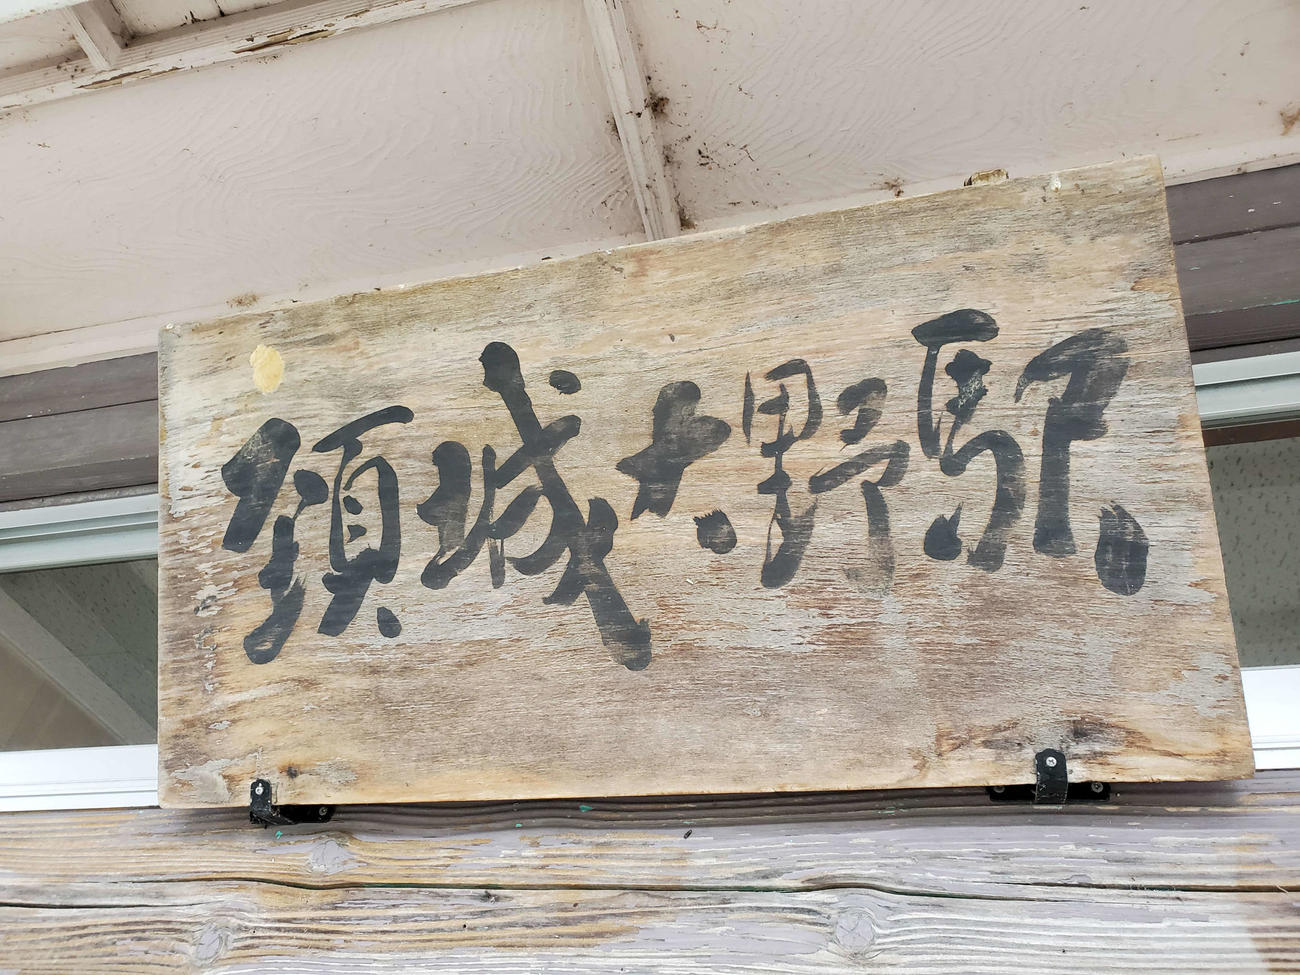 頸城大野駅